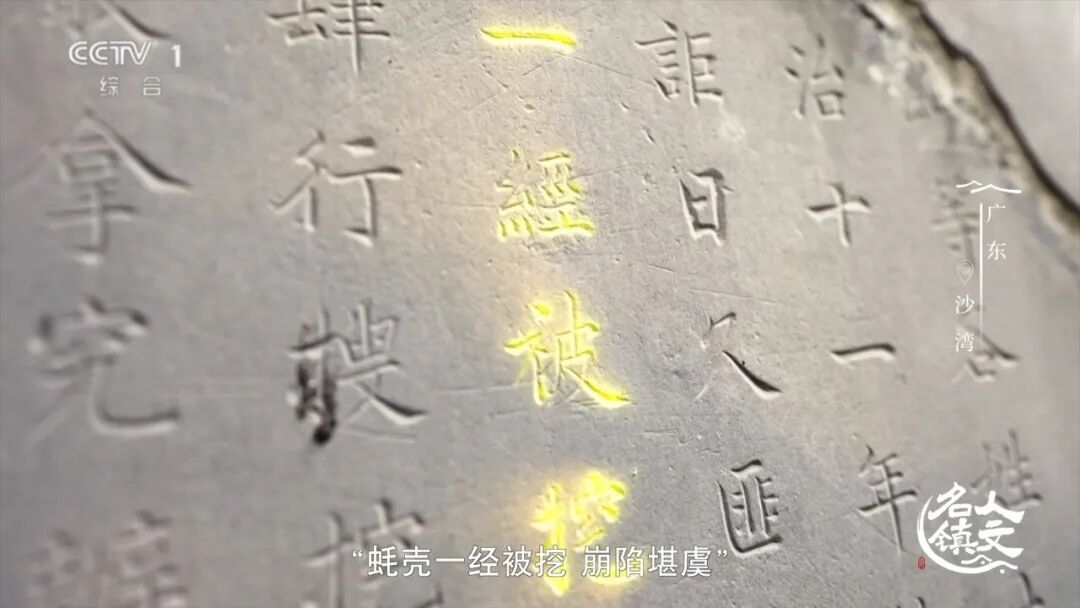 CCTV 1
综合
等合姓
治十一年
詎日久匪
一經被挖
肆行搜挖
拿究
广东
沙湾
人文
名镇
“蚝壳一经被挖 崩陷堪虞”